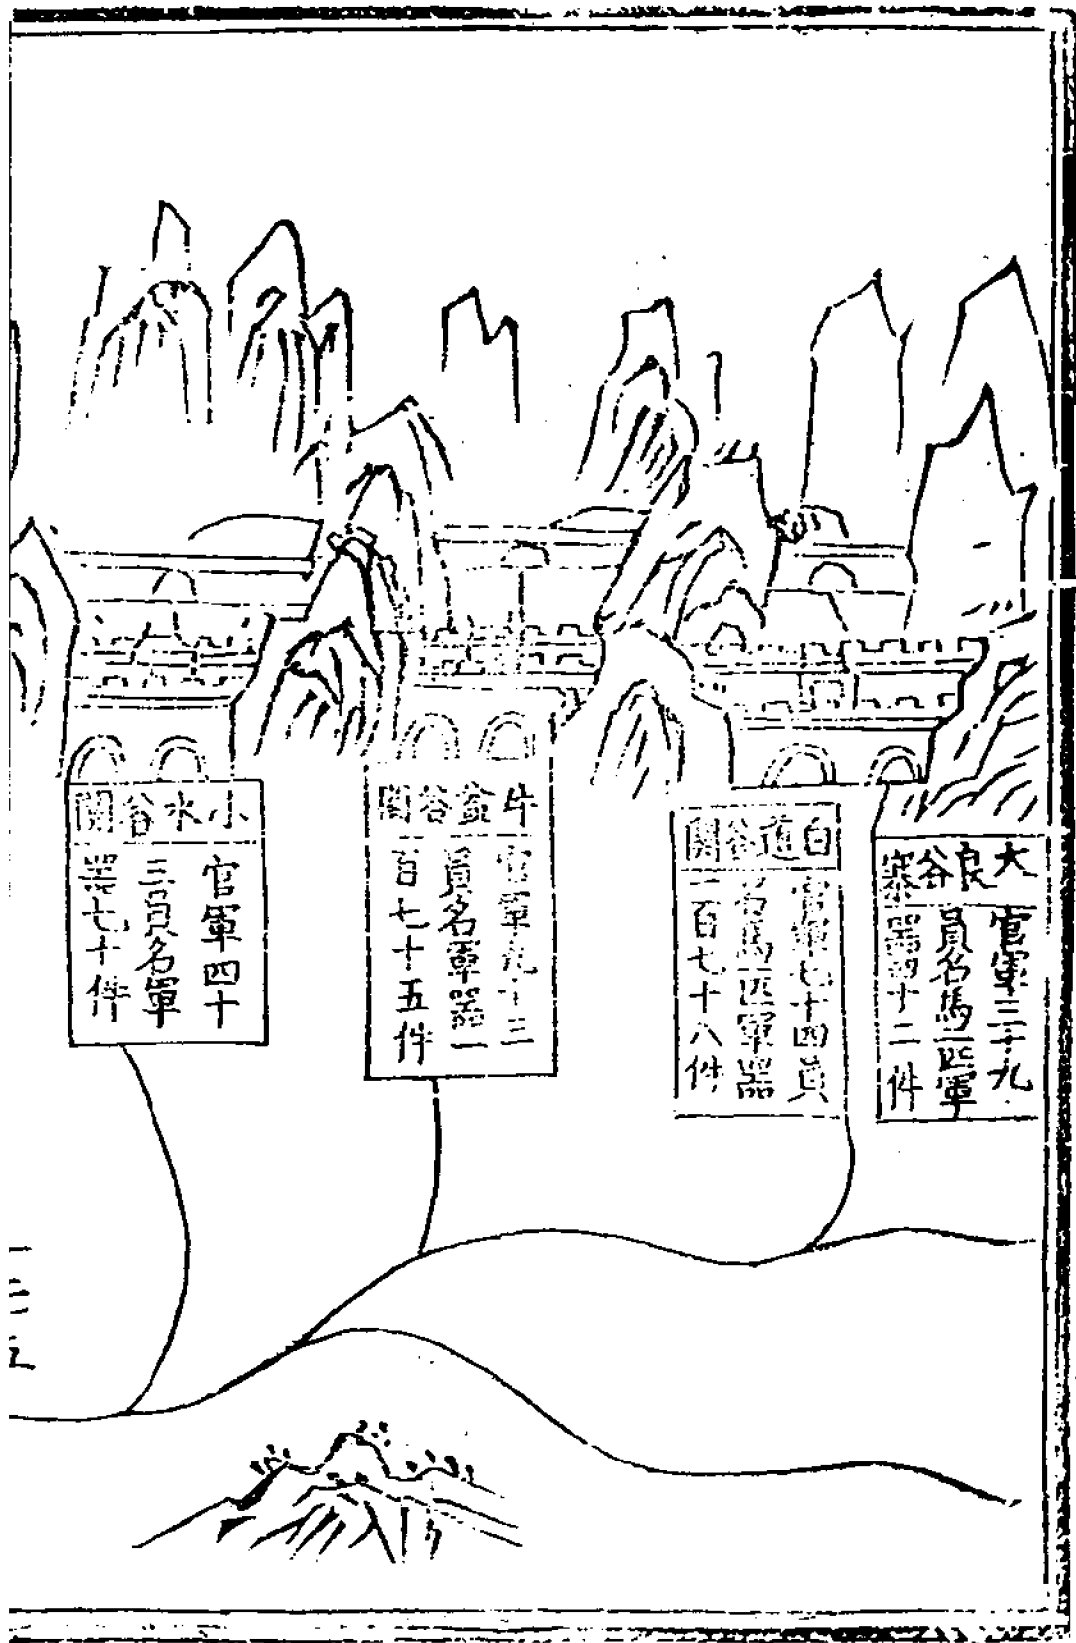 大良谷寨
官軍三十九
員名馬一匹軍
器四十二件
白道谷關
官軍七十四員
名馬匹軍器
二百七十八件
牛盆谷關
官軍九十三
員名軍器一
百七十五件
小水谷關
官軍四十
三員名軍
器七十件